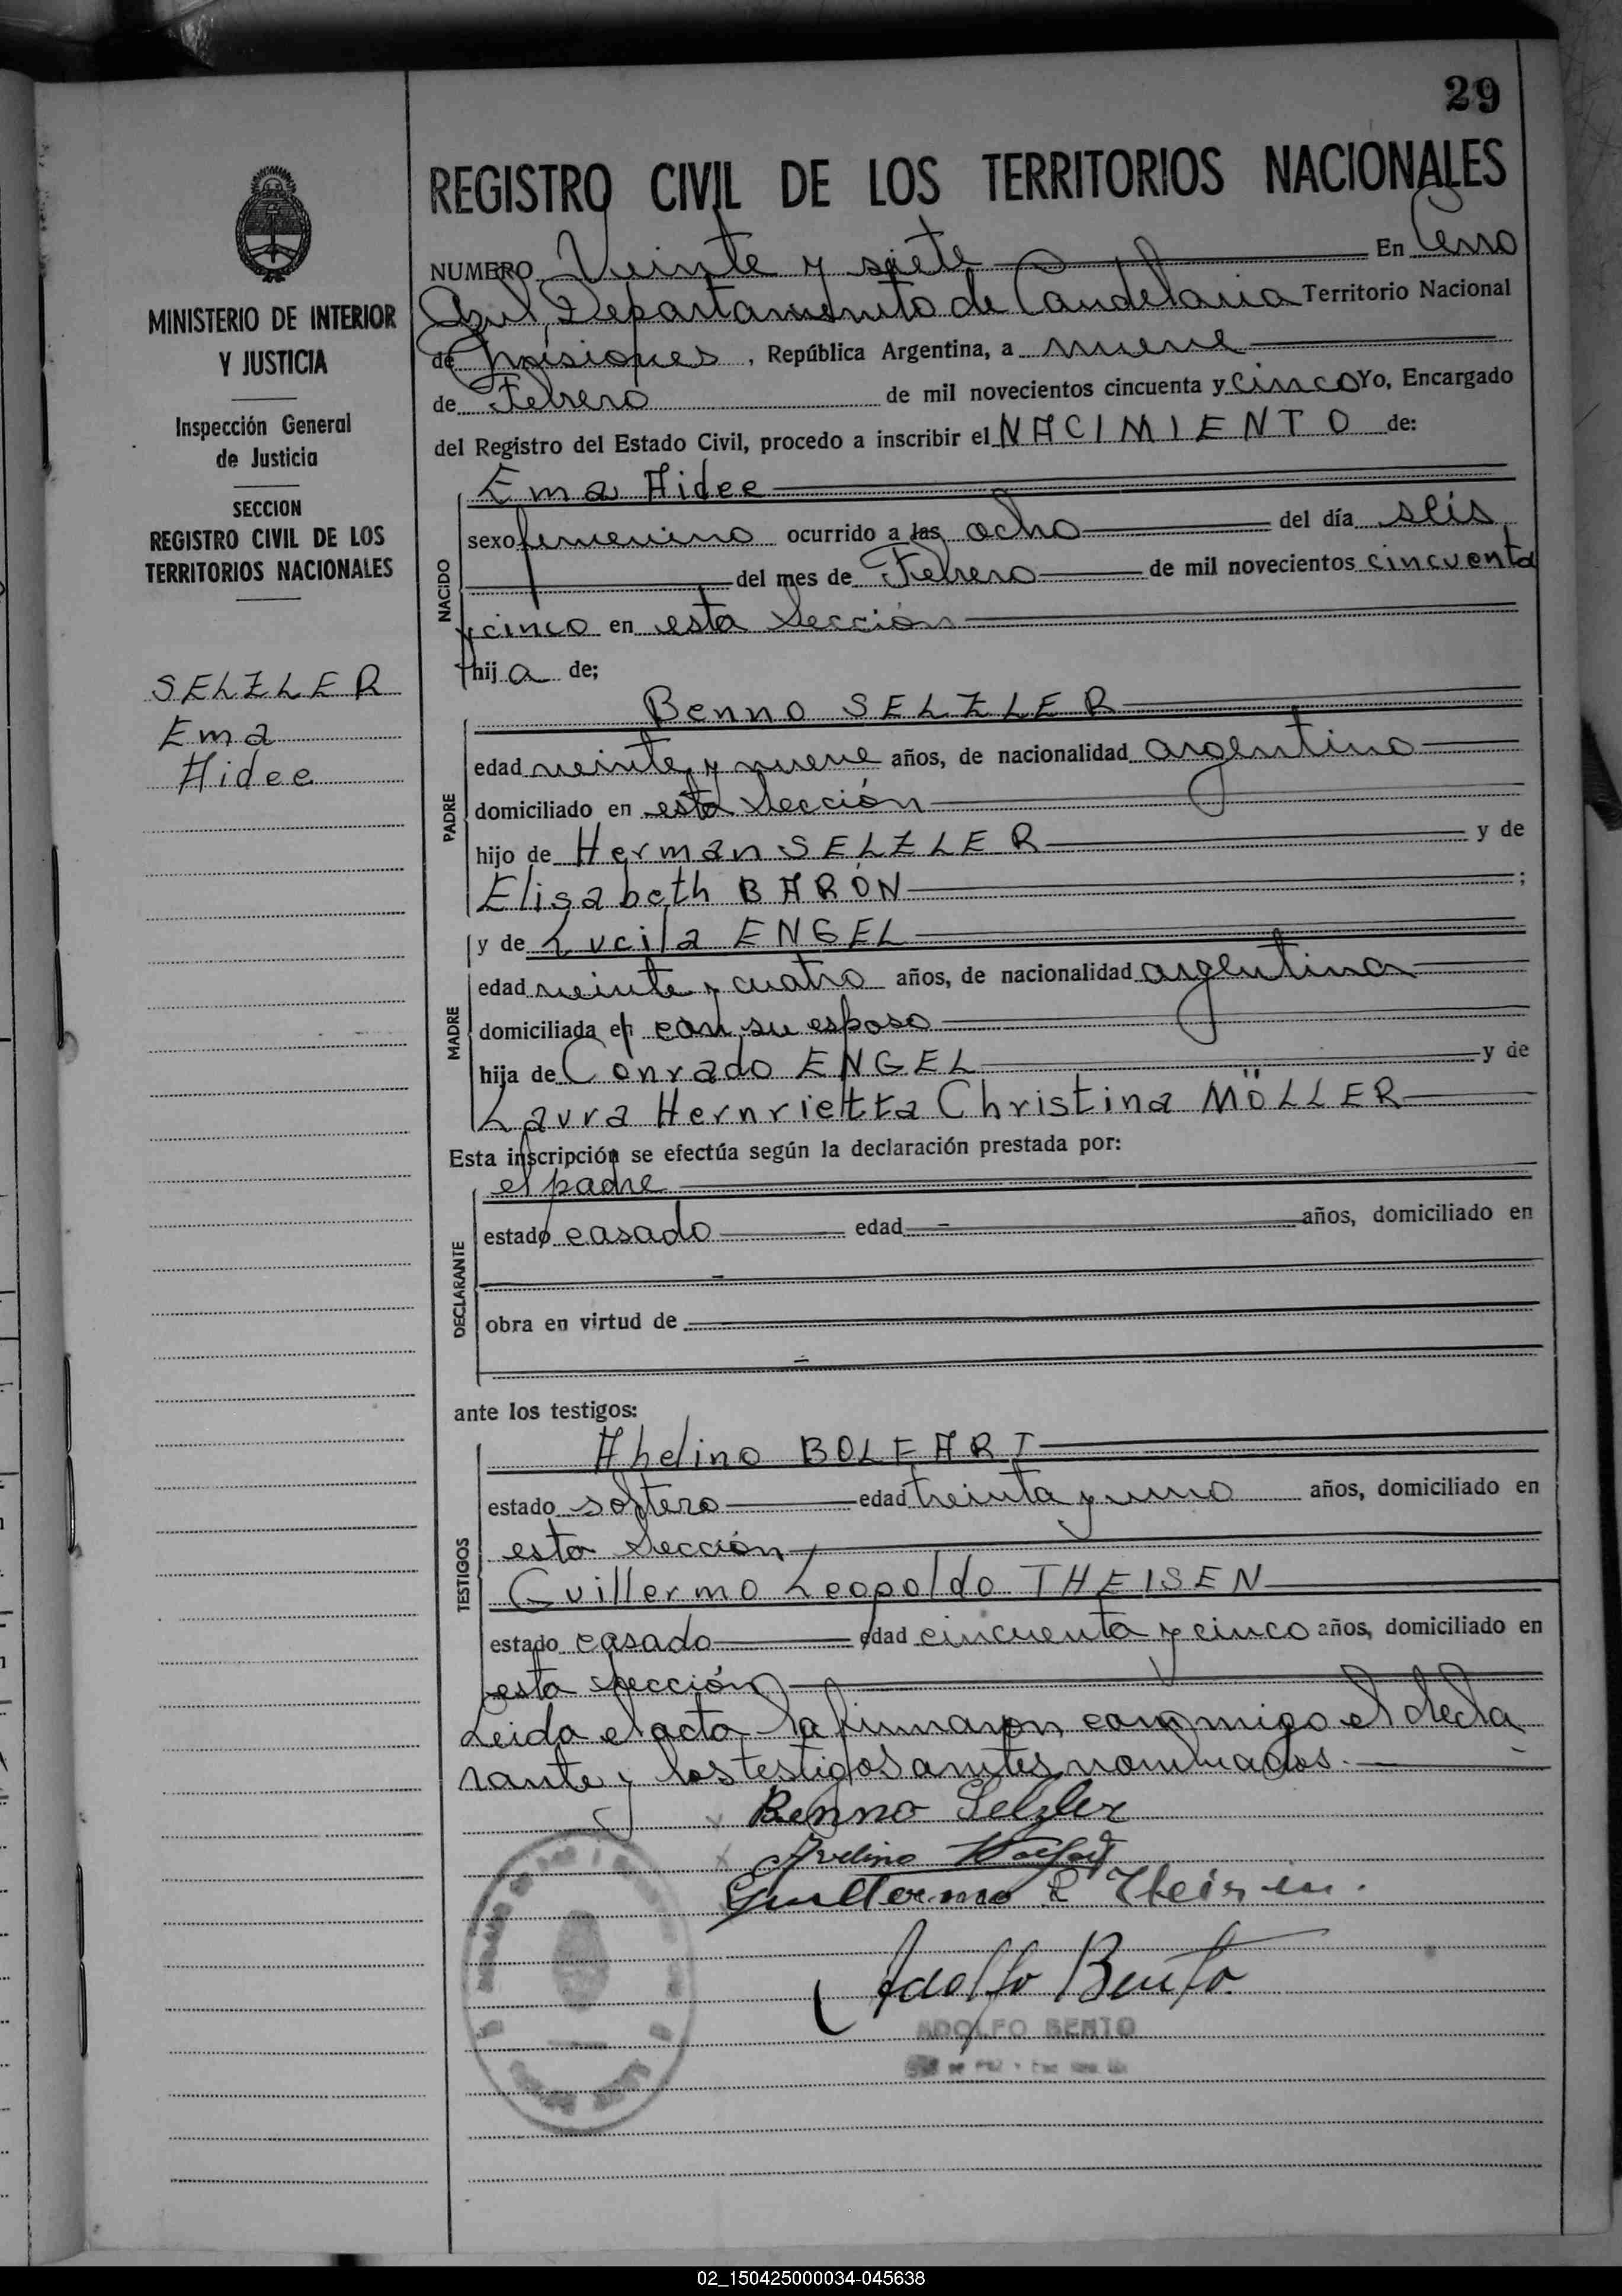 29
REGISTRO CIVIL DE LOS TERRITORIOS NACIONALES
MINISTERIO DE INTERIOR
Y JUSTICIA
Inspección General
de Justicia
SECCION
REGISTRO CIVIL DE LOS
TERRITORIOS NACIONALES
SELZLER
Ema
Hidee
NUMERO Veinte y siete En Cerro
Azul, Departamento de Candelaria Territorio Nacional
de Misiones, República Argentina, a nueve
de Febrero de mil novecientos cincuenta y cinco Yo, Encargado
del Registro del Estado Civil, procedo a inscribir el NACIMIENTO de:
NACIDO
Ema Hidee
sexo femenino ocurrido a las ocho del día seis
del mes de Febrero de mil novecientos cincuenta
y cinco en esta Sección
hija de;
PADRE
Benno SELZLER
edad veinte y nueve años, de nacionalidad argentino
domiciliado en esta Sección
hijo de Herman SELZLER y de
Elisabeth BARÓN ;
MADRE
y de Lucila ENGEL
edad veinte y cuatro años, de nacionalidad argentina
domiciliada en con su esposo
hija de Conrado ENGEL y de
Laura Hernrietta Christina MÖLLER
Esta inscripción se efectúa según la declaración prestada por:
DECLARANTE
el padre
estado casado edad años, domiciliado en
obra en virtud de
ante los testigos:
TESTIGOS
Abelino BOLFART
estado soltero edad treinta y uno años, domiciliado en
esta Sección
Guillermo Leopoldo THEISEN
estado casado edad cincuenta y cinco años, domiciliado en
esta sección
Leida el acta la firmaron conmigo el decla
rante y los testigos antes nombrados.
Benno Selzler
Avelino
Guillermo L Theisen.
Adolfo Bento
ADOLFO BENTO
02_150425000034-045638